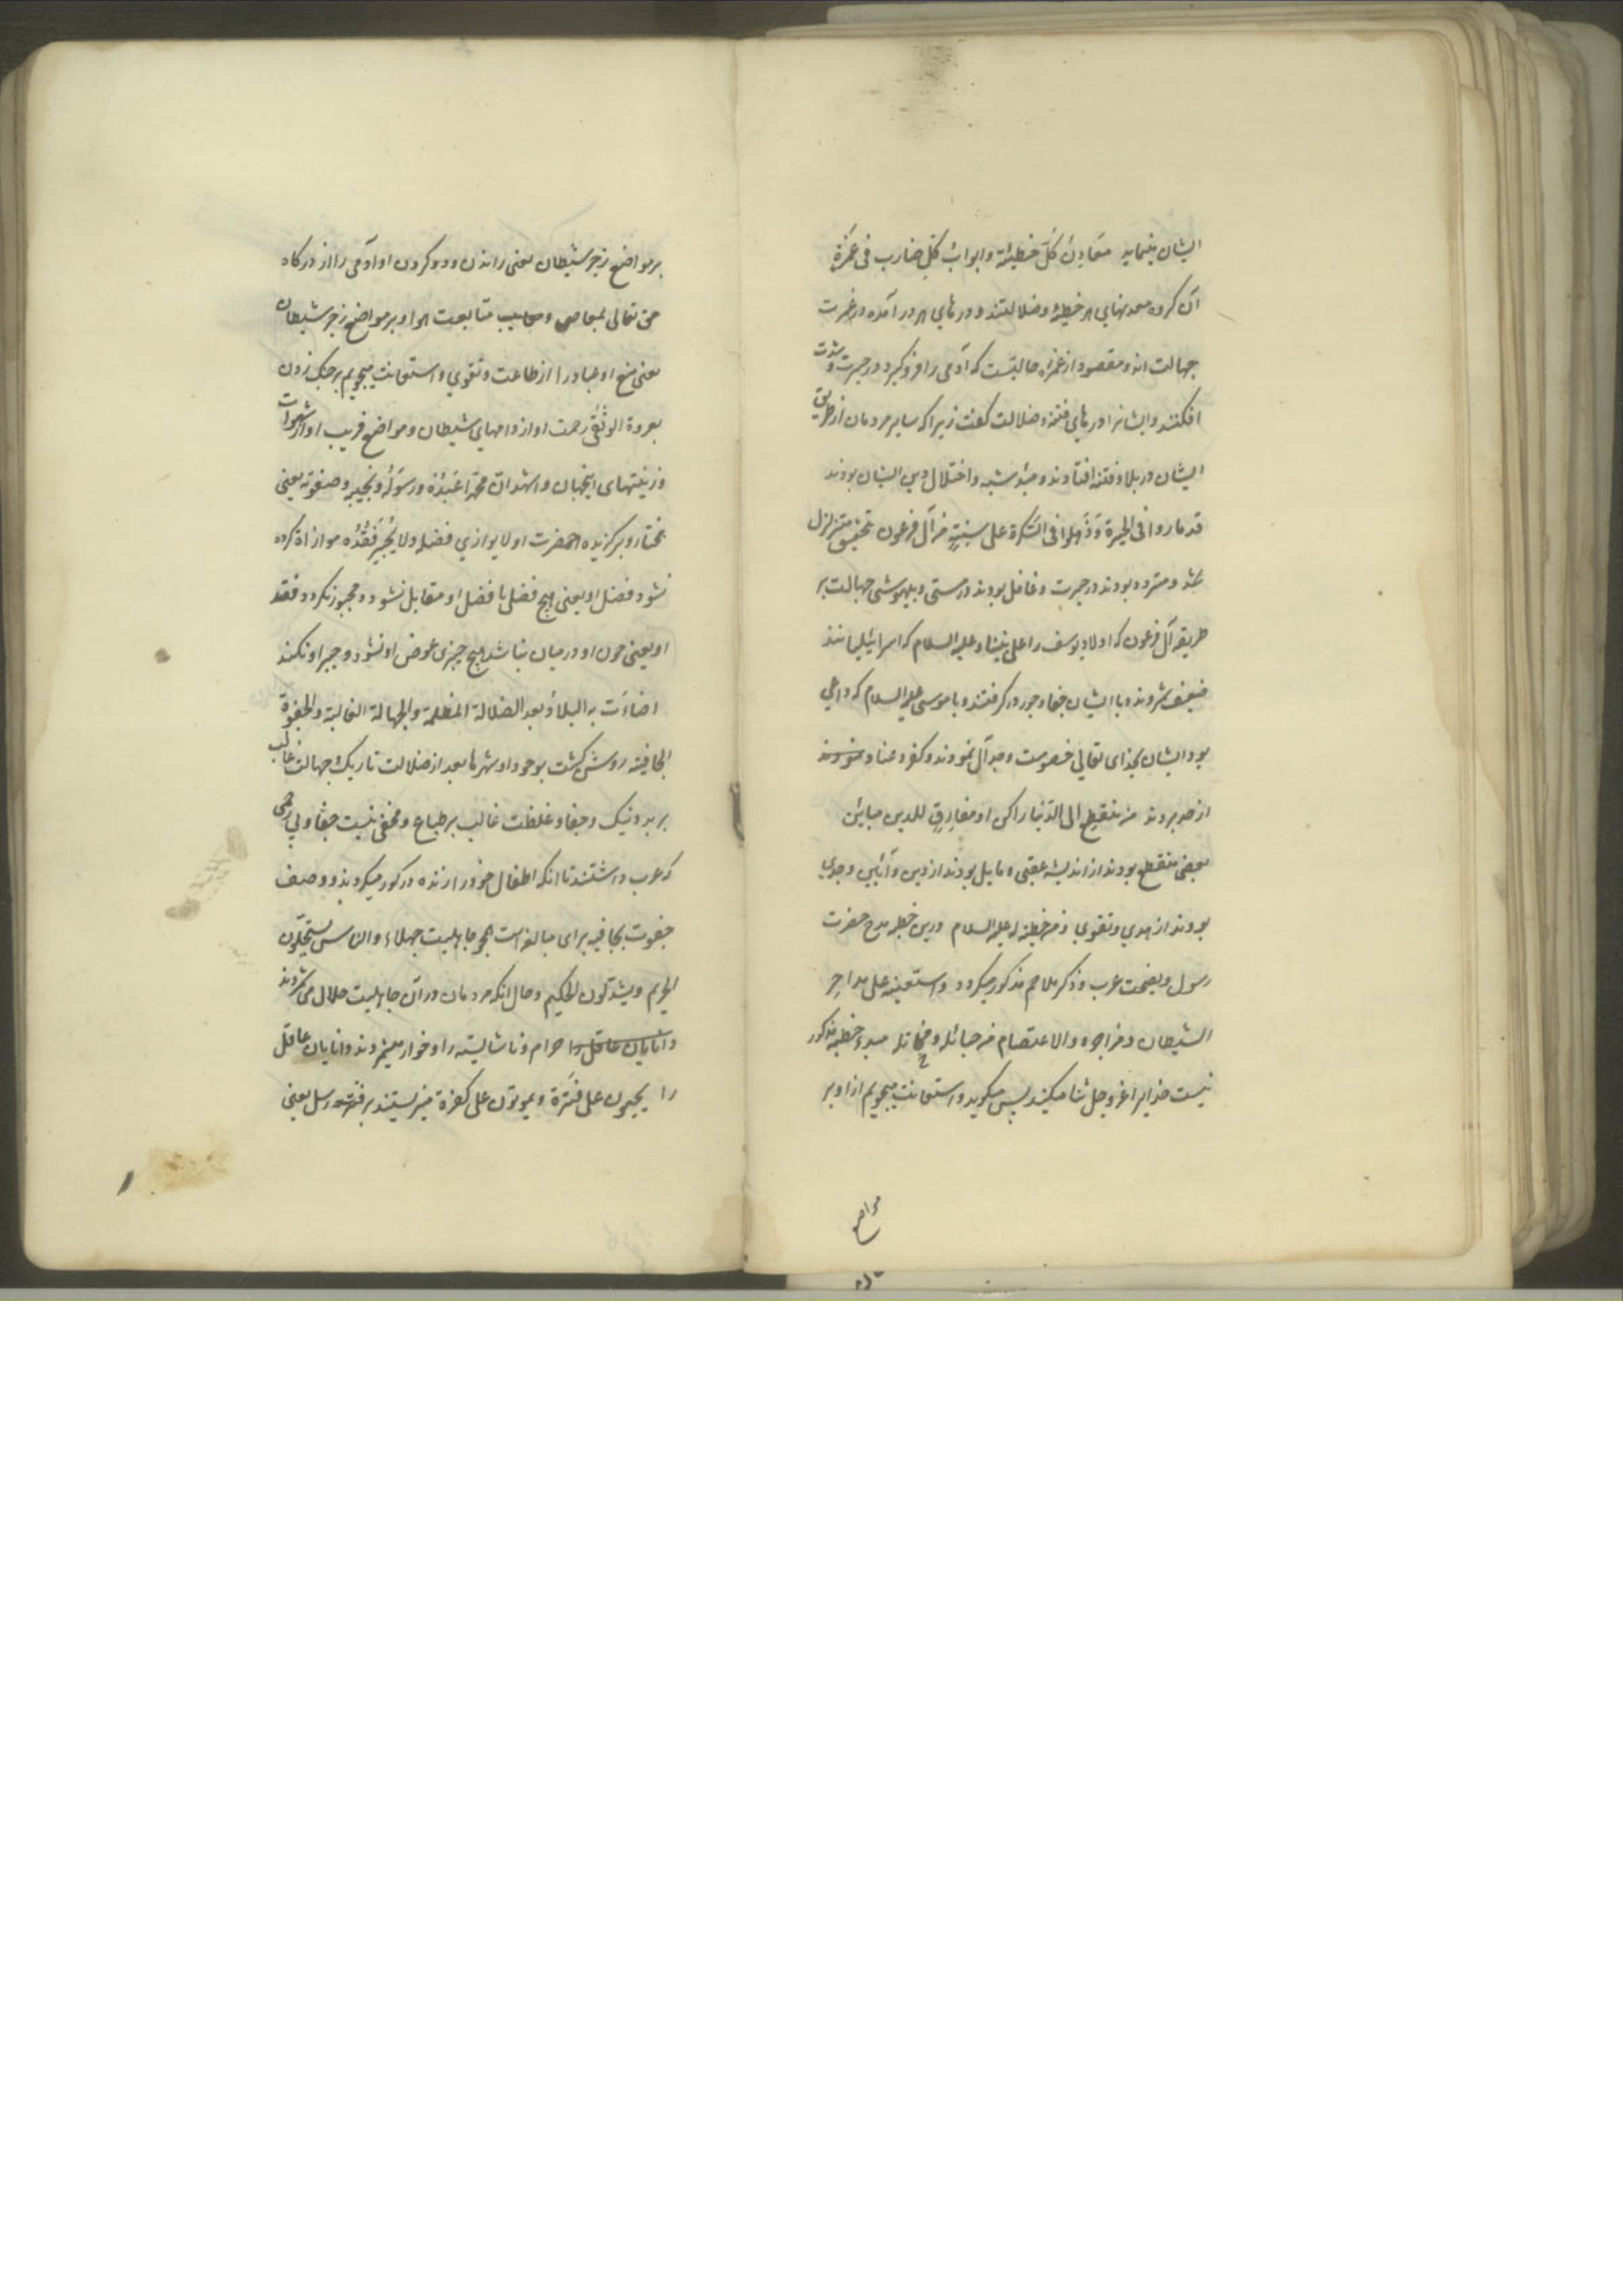 ایشان بنماید معادِنُ کُلِّ خطیئة وابوابُ کُلِّ ضاربٍ فی غَمْرَةٍ
آن کروه معدنهای هر خطیئه وضلالتند ودرهای هر در آمده در غمرت
جهالت اند ومقصود از غمره حالتیست که آدمی را فرو کیرد ودر حیرت وشدت
افکند وایشانرا درهای فتنه وضلالت کفت زیرا که سایر مردمان از طریق
ایشان در بلا وفتنه افتادند و شبه واختلال دین ایشان بودند
قد ماروا فی الحیرة وَذَهلوا فی السَّکرة علی سنةٍ من آل فرعون بتحقیق متزلزل
شد ومتردد بودند در حیرت وغافل بودند در مستی وبیهوشی جهالت بر
طریقه آل فرعون که اولاد یوسف را علی نبینا وعلیه السلام که اسرائیلیانند
ضعیف شمردند وبا ایشان جفا وجور در کرفتند وبا موسی علیه السلام که داعی
بود ایشان بخدای تعالی خصومت وجدال نمودند وکفر وعناد نمودند
از حد بردند من منقطعٍ الی الدّنیا راکن او مفارِقٍ للدین مباین
بعضی منقطع بودند از اندیشه عقبی ومایل بودند از دین وآئین وجدای
بودند از هدی وتقوی ومن خطبة له علیه السلام درین خطبه مدح حضرت
رسول ونصیحت عرب وذکر ملاحم مذکور میکردد واستعینه علی مداحر
الشیطان ومزاجره والاعتصام من حبائله ومخاتله مبدء خطبه مذکور
نیست خدایرا عز وجل ثنا میکند پس میکوید واستعانت میجویم از او بر
مواضع
بر مواضع زجر شیطان یعنی راندن ودور کردن او آدمی را از درکاه
حق تعالی بمعاصی و متابعت هوا وبر مواضع زجر شیطان
یعنی منع او عباد را از طاعت وتقوی واستعانت میجویم بر چنک زدن
بعروة الوثقی رحمت او از دامهای شیطان ومواضع فریب او از شهوات
وزینتهای اینجهان واشهد انّ محمّدا عَبْدُهُ ورسولُهُ ونجیبه وصفوته یعنی
مختار وبرکزیده آنحضرت او لا یوازی فضله ولا یُجْبَر فَقْدُه موازاة کرده
نشود فضل او یعنی هیچ فضلی با فضل او مقابل نشود ومجبور نکردد فقد
او یعنی چون او در میان نباشد هیچ چیزی عوض او نشود وجبر او نکند
اضاءَت به البلادُ بعد الضلالة المظلمة والجهالة الغالبة والجفوة
الجافیة روشن کشت بوجود او شهرها بعد از ضلالت تاریک وجهالت غالب
بر بد ونیک وجفا وغلظت غالب بر طباع ومخفی نیست جفا وبی رحمی
که عرب داشتند تا آنکه اطفال خود را زنده در کور میکردند ووصف
جفوت بجافیه برای مبالغه است همچو جاهلیت جهلاء والناس یستحلّون
الحریم ویستذلون الحکیم وحال آنکه مردمان در آن جاهلیت حلال می شمردند
دانایان عاقل را حرام وناشایسته را وخوار میشمردند دانایان عاقل
را یحیون علی فترة ویموتون علی کفرة میزیستند بر فترت رسل یعنی